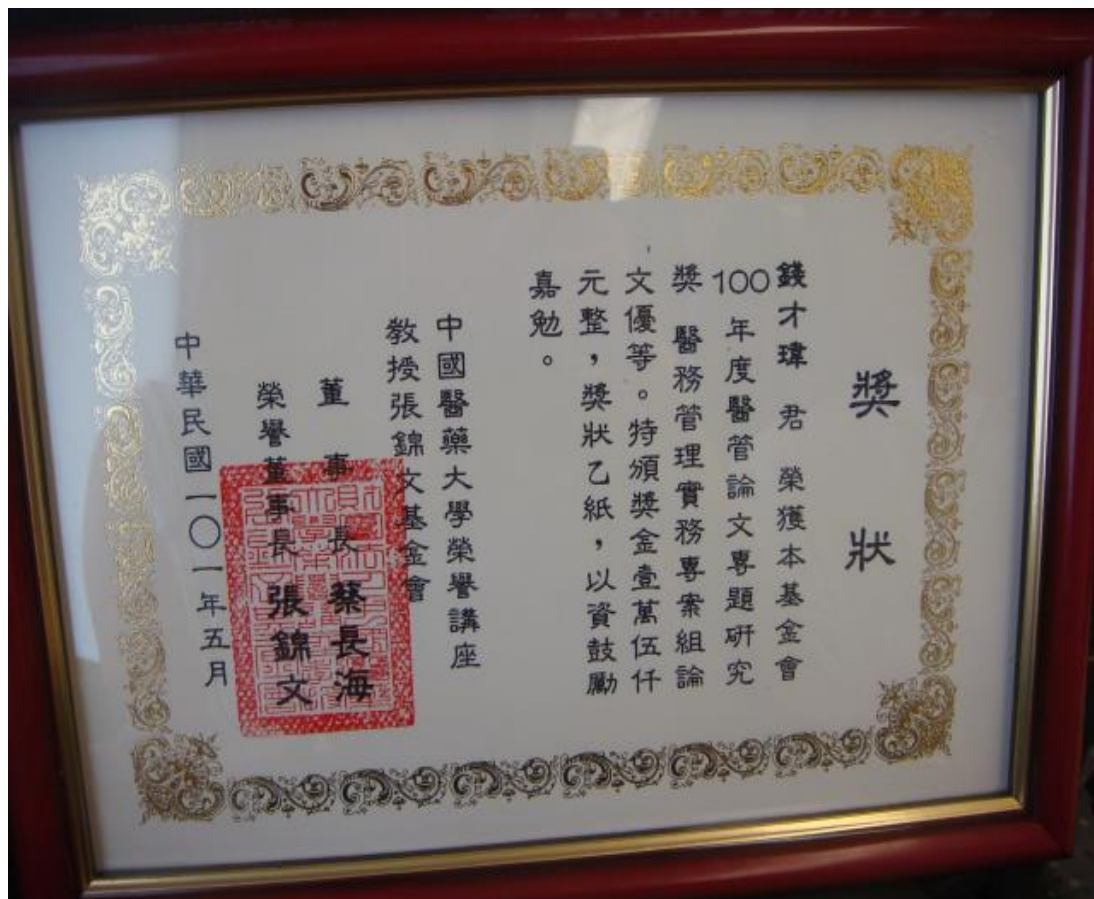 獎狀
錢才瑋 君 榮獲本基金會
100 年度醫管論文專題研究
獎 醫務管理實務專案組論
文優等。特頒獎金壹萬伍仟
元整,獎狀乙紙,以資鼓勵
嘉勉。
中國醫藥大學榮譽講座
教授張錦文基金會
董事長 蔡長海
榮譽董事長 張錦文
中華民國一〇一年五月